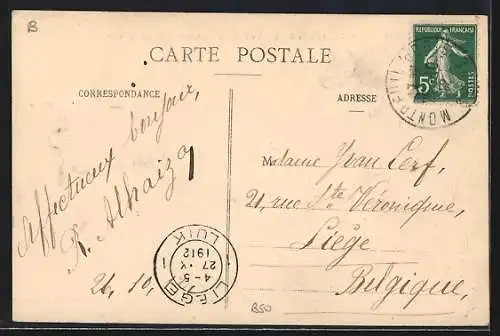 B
CARTE POSTALE
CORRESPONDANCE
ADRESSE
REPUBLIQUE FRANÇAISE
5c
POSTES
MONTREUIL
Affectueux bonjour,
R.
Madame Yvan Cerf,
21, rue Ste Véronique,
Liège
Belgique,
LIÉGE 1
4-5
27 · X
1912
LUIK
B50